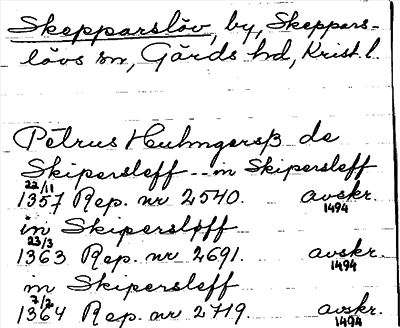 Skepparslöv, by, Skeppars-
lövs sn, Gärds hd, Krist. l.
Petrus Huhngerss de
Skipersleff -- in Skipersleff
22/11
1357 Rep. nr 2540. avskr.
1494
in Skipersløff
23/3
1363 Rep. nr 2691. avskr.
1494
in Skipersleff
7/2
1364 Rep. nr 2719. avskr.
1494